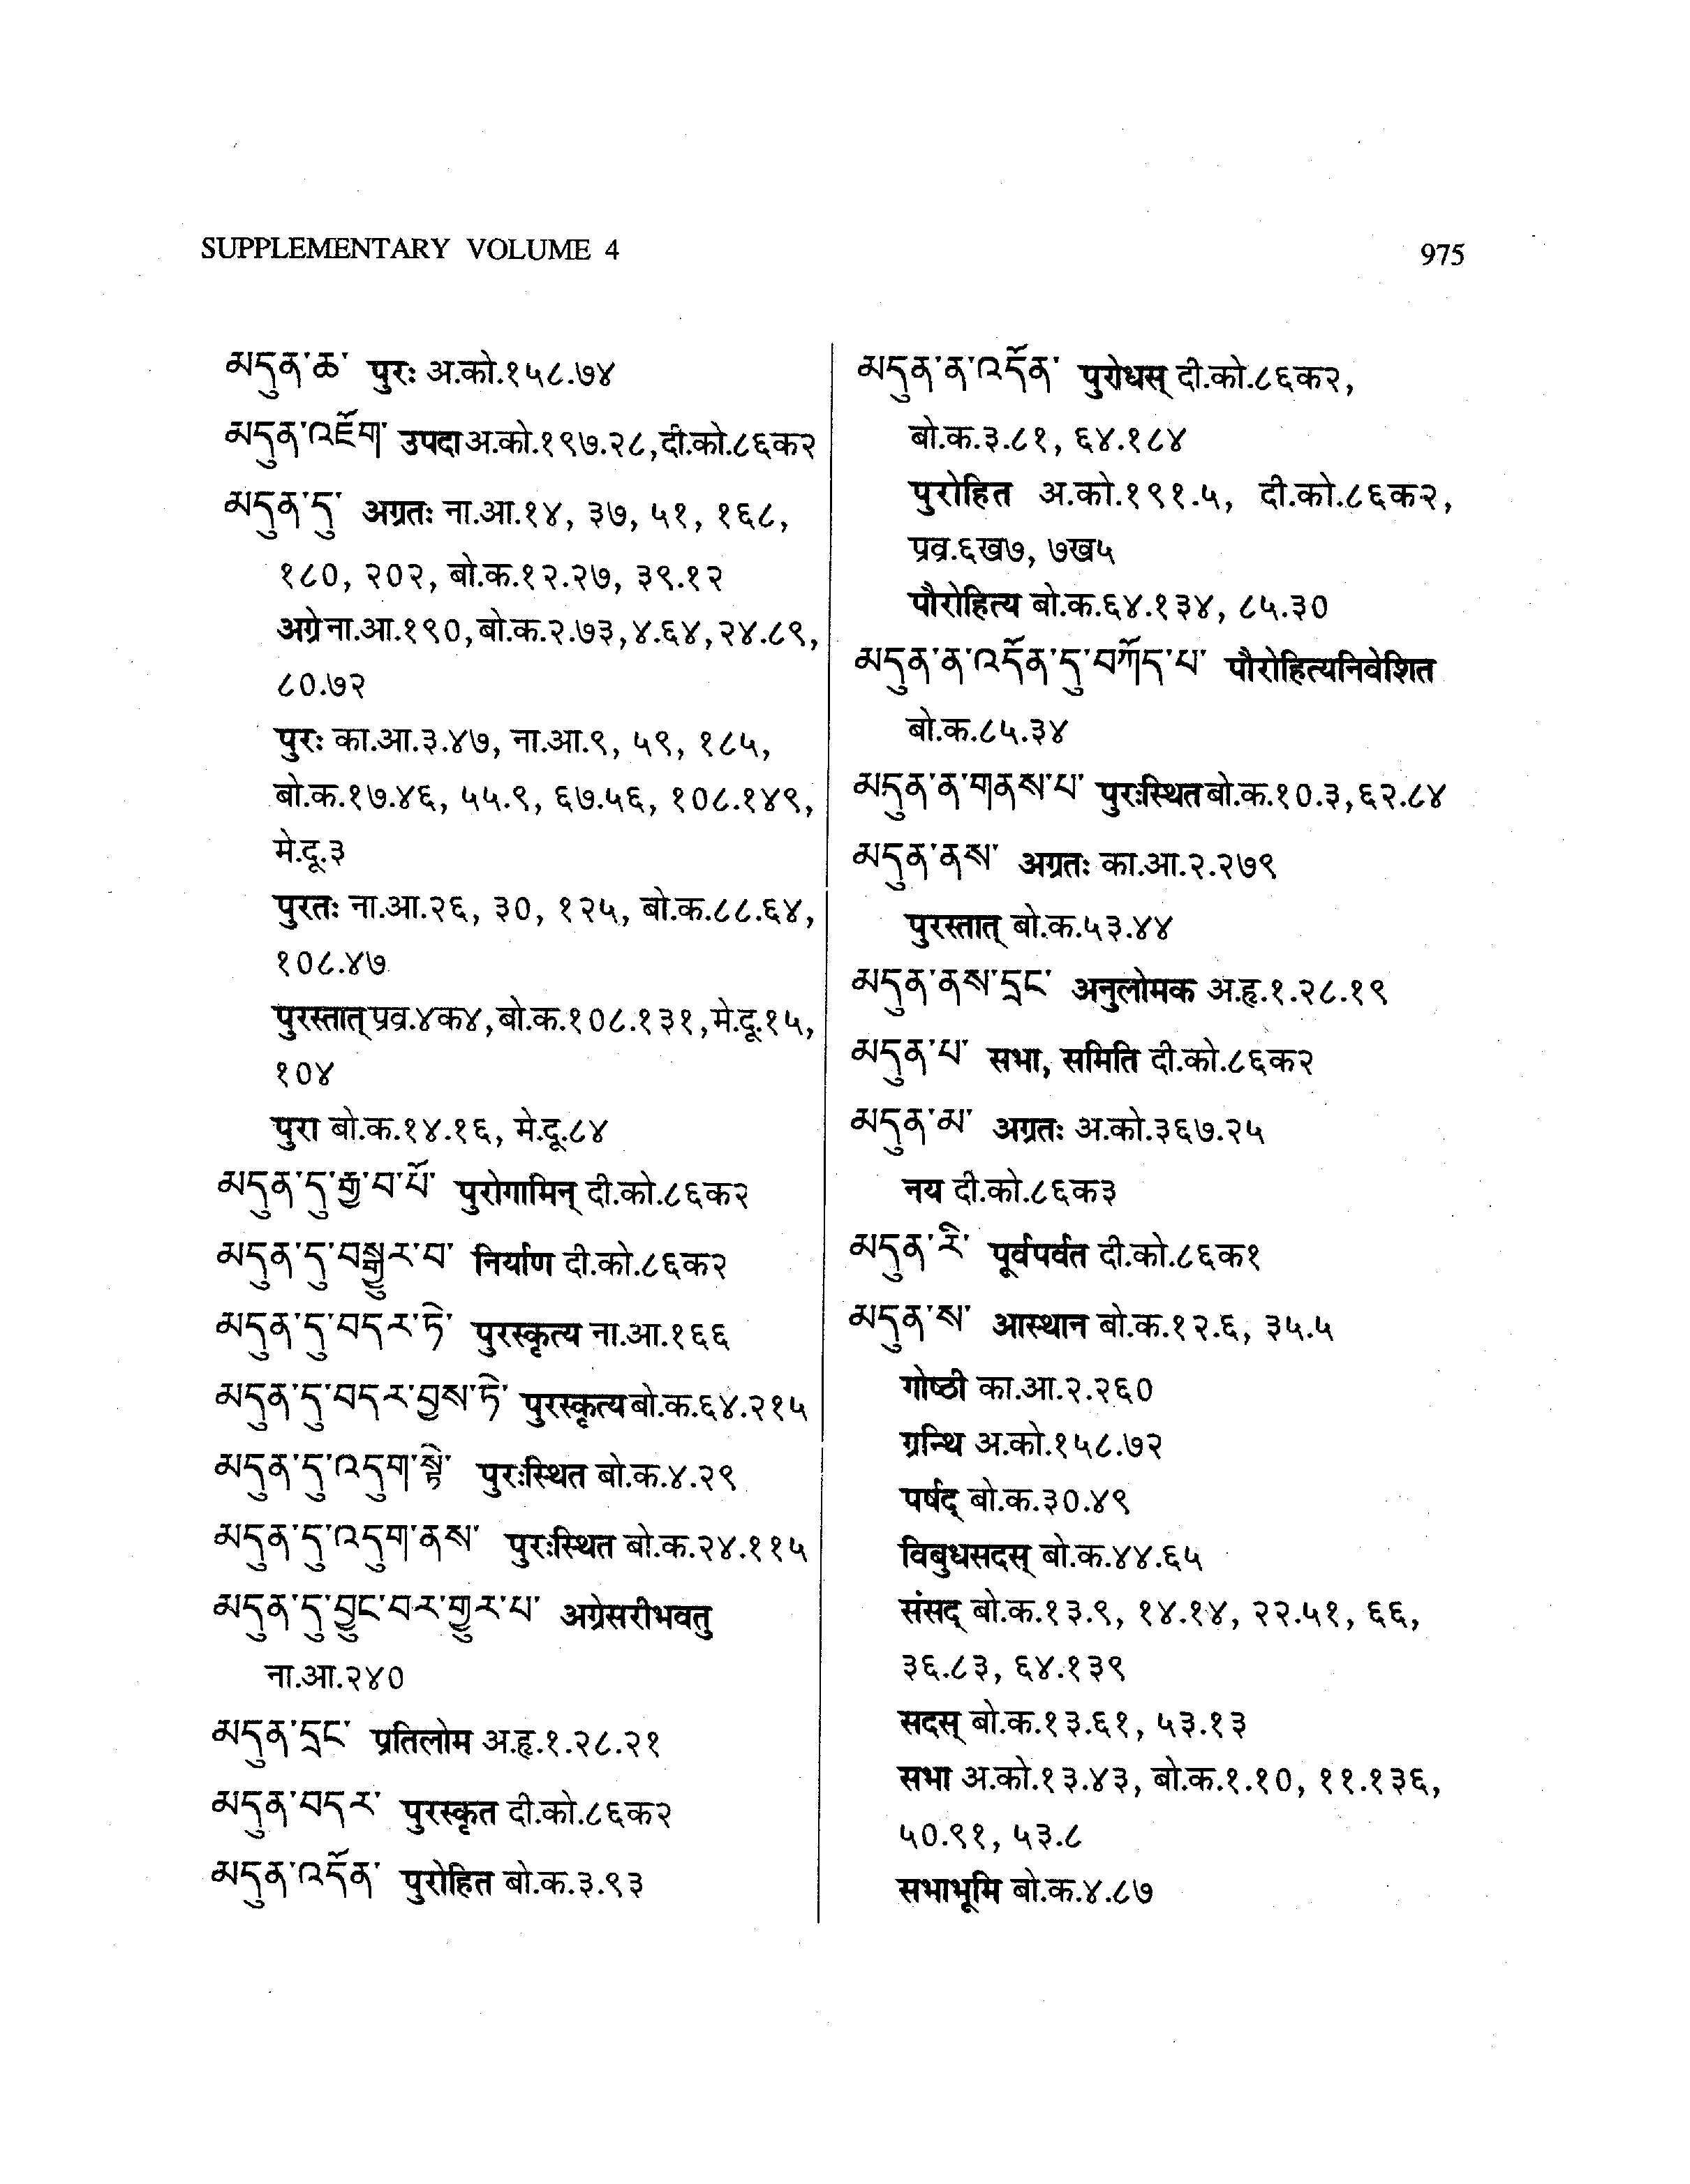 SUPPLEMENTARY VOLUME 4
975
མདུན་ཆ་ पुरः अ.को.१५८.७४
མདུན་འཇོག་ उपदा अ.को.१९७.२८, दी.को.८६क२
མདུན་དུ་ अग्रतः ना.आ.१४, ३७, ५१, १६८,
१८०, २०२, बो.क.१२.२७, ३९.१२
अग्रे ना.आ.१९०, बो.क.२.७३, ४.६४, २४.८९,
८०.७२
पुरः का.आ.३.४७, ना.आ.९, ५९, १८५,
बो.क.१७.४६, ५५.९, ६७.५६, १०८.१४९,
मे.दू.३
पुरतः ना.आ.२६, ३०, १२५, बो.क.८८.६४,
१०८.४७
पुरस्तात् प्रव्र.४क४, बो.क.१०८.१३१, मे.दू.१५,
१०४
पुरा बो.क.१४.१६, मे.दू.८४
མདུན་དུ་རྒྱ་བ་པོ་ पुरोगामिन् दी.को.८६क२
མདུན་དུ་བསྒྱུར་བ་ निर्याण दी.को.८६क२
མདུན་དུ་བདར་ཏེ་ पुरस्कृत्य ना.आ.१६६
མདུན་དུ་བདར་བྱས་ཏེ་ पुरस्कृत्य बो.क.६४.२१५
མདུན་དུ་འདུག་སྟེ་ पुरःस्थित बो.क.४.२९
མདུན་དུ་འདུག་ནས་ पुरःस्थित बो.क.२४.११५
མདུན་དུ་བྱུང་བར་གྱུར་པ་ अग्रेसरीभवतु
ना.आ.२४०
མདུན་དྲང་ प्रतिलोम अ.हृ.१.२८.२१
མདུན་བདར་ पुरस्कृत दी.को.८६क२
མདུན་འདོན་ पुरोहित बो.क.३.९३
མདུན་ན་འདོན་ पुरोधस् दी.को.८६क२,
बो.क.३.८१, ६४.१८४
पुरोहित अ.को.१९१.५, दी.को.८६क२,
प्रव्र.६ख७, ७ख५
पौरोहित्य बो.क.६४.१३४, ८५.३०
མདུན་ན་འདོན་དུ་བཀོད་པ་ पौरोहित्यनिवेशित
बो.क.८५.३४
མདུན་ན་གནས་པ་ पुरःस्थित बो.क.१०.३, ६२.८४
མདུན་ནས་ अग्रतः का.आ.२.२७९
पुरस्तात् बो.क.५३.४४
མདུན་ནས་དྲང་ अनुलोमक अ.हृ.१.२८.१९
མདུན་པ་ सभा, समिति दी.को.८६क२
མདུན་མ་ अग्रतः अ.को.३६७.२५
नय दी.को.८६क३
མདུན་རི་ पूर्वपर्वत दी.को.८६क१
མདུན་ས་ आस्थान बो.क.१२.६, ३५.५
गोष्ठी का.आ.२.२६०
ग्रन्थि अ.को.१५८.७२
पर्षद् बो.क.३०.४९
विबुधसदस् बो.क.४४.६५
संसद् बो.क.१३.९, १४.१४, २२.५१, ६६,
३६.८३, ६४.१३९
सदस् बो.क.१३.६१, ५३.१३
सभा अ.को.१३.४३, बो.क.१.१०, ११.१३६,
५०.९१, ५३.८
सभाभूमि बो.क.४.८७